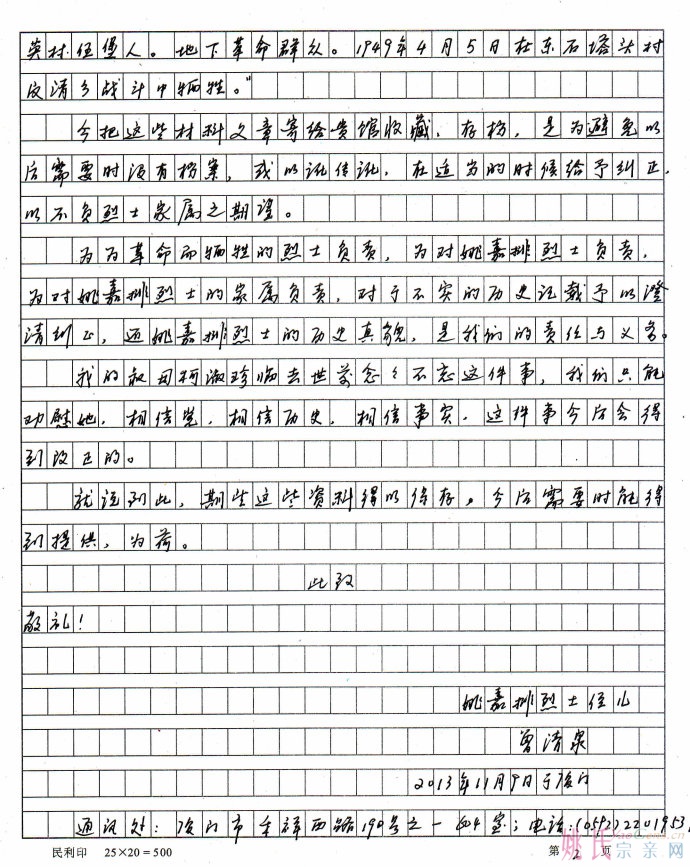 英村伍堡人。地下革命群众。1949年4月5日在东石塔头村
反清乡战斗中牺牲。"
今把这些材料文章寄给贵馆收藏，存档，是为避免以
后需要时没有档案，或以讹传讹，在适当的时候给予纠正，
以不负烈士家属之期望。
为为革命而牺牲的烈士负责，为对姚嘉排烈士负责，
为对姚嘉排烈士的家属负责，对于不实的历史记载予以澄
清纠正，还姚嘉排烈士的历史真貌，是我们的责任与义务。
我的叔母柯淑珍临去世前念念不忘这件事，我们只能
劝慰她，相信党，相信历史，相信事实，这件事今后会得
到改正的。
就说到此，期望这些资料得以保存。今后需要时能得
到提供，为荷。
此致
敬礼！
姚嘉排烈士侄儿
曾清泉
2013年11月9日于厦门
通讯处：厦门市 西路190号之一604室；电话：(0592)2201953
民利印 25×20=500
第 2 页
姚氏宗亲网